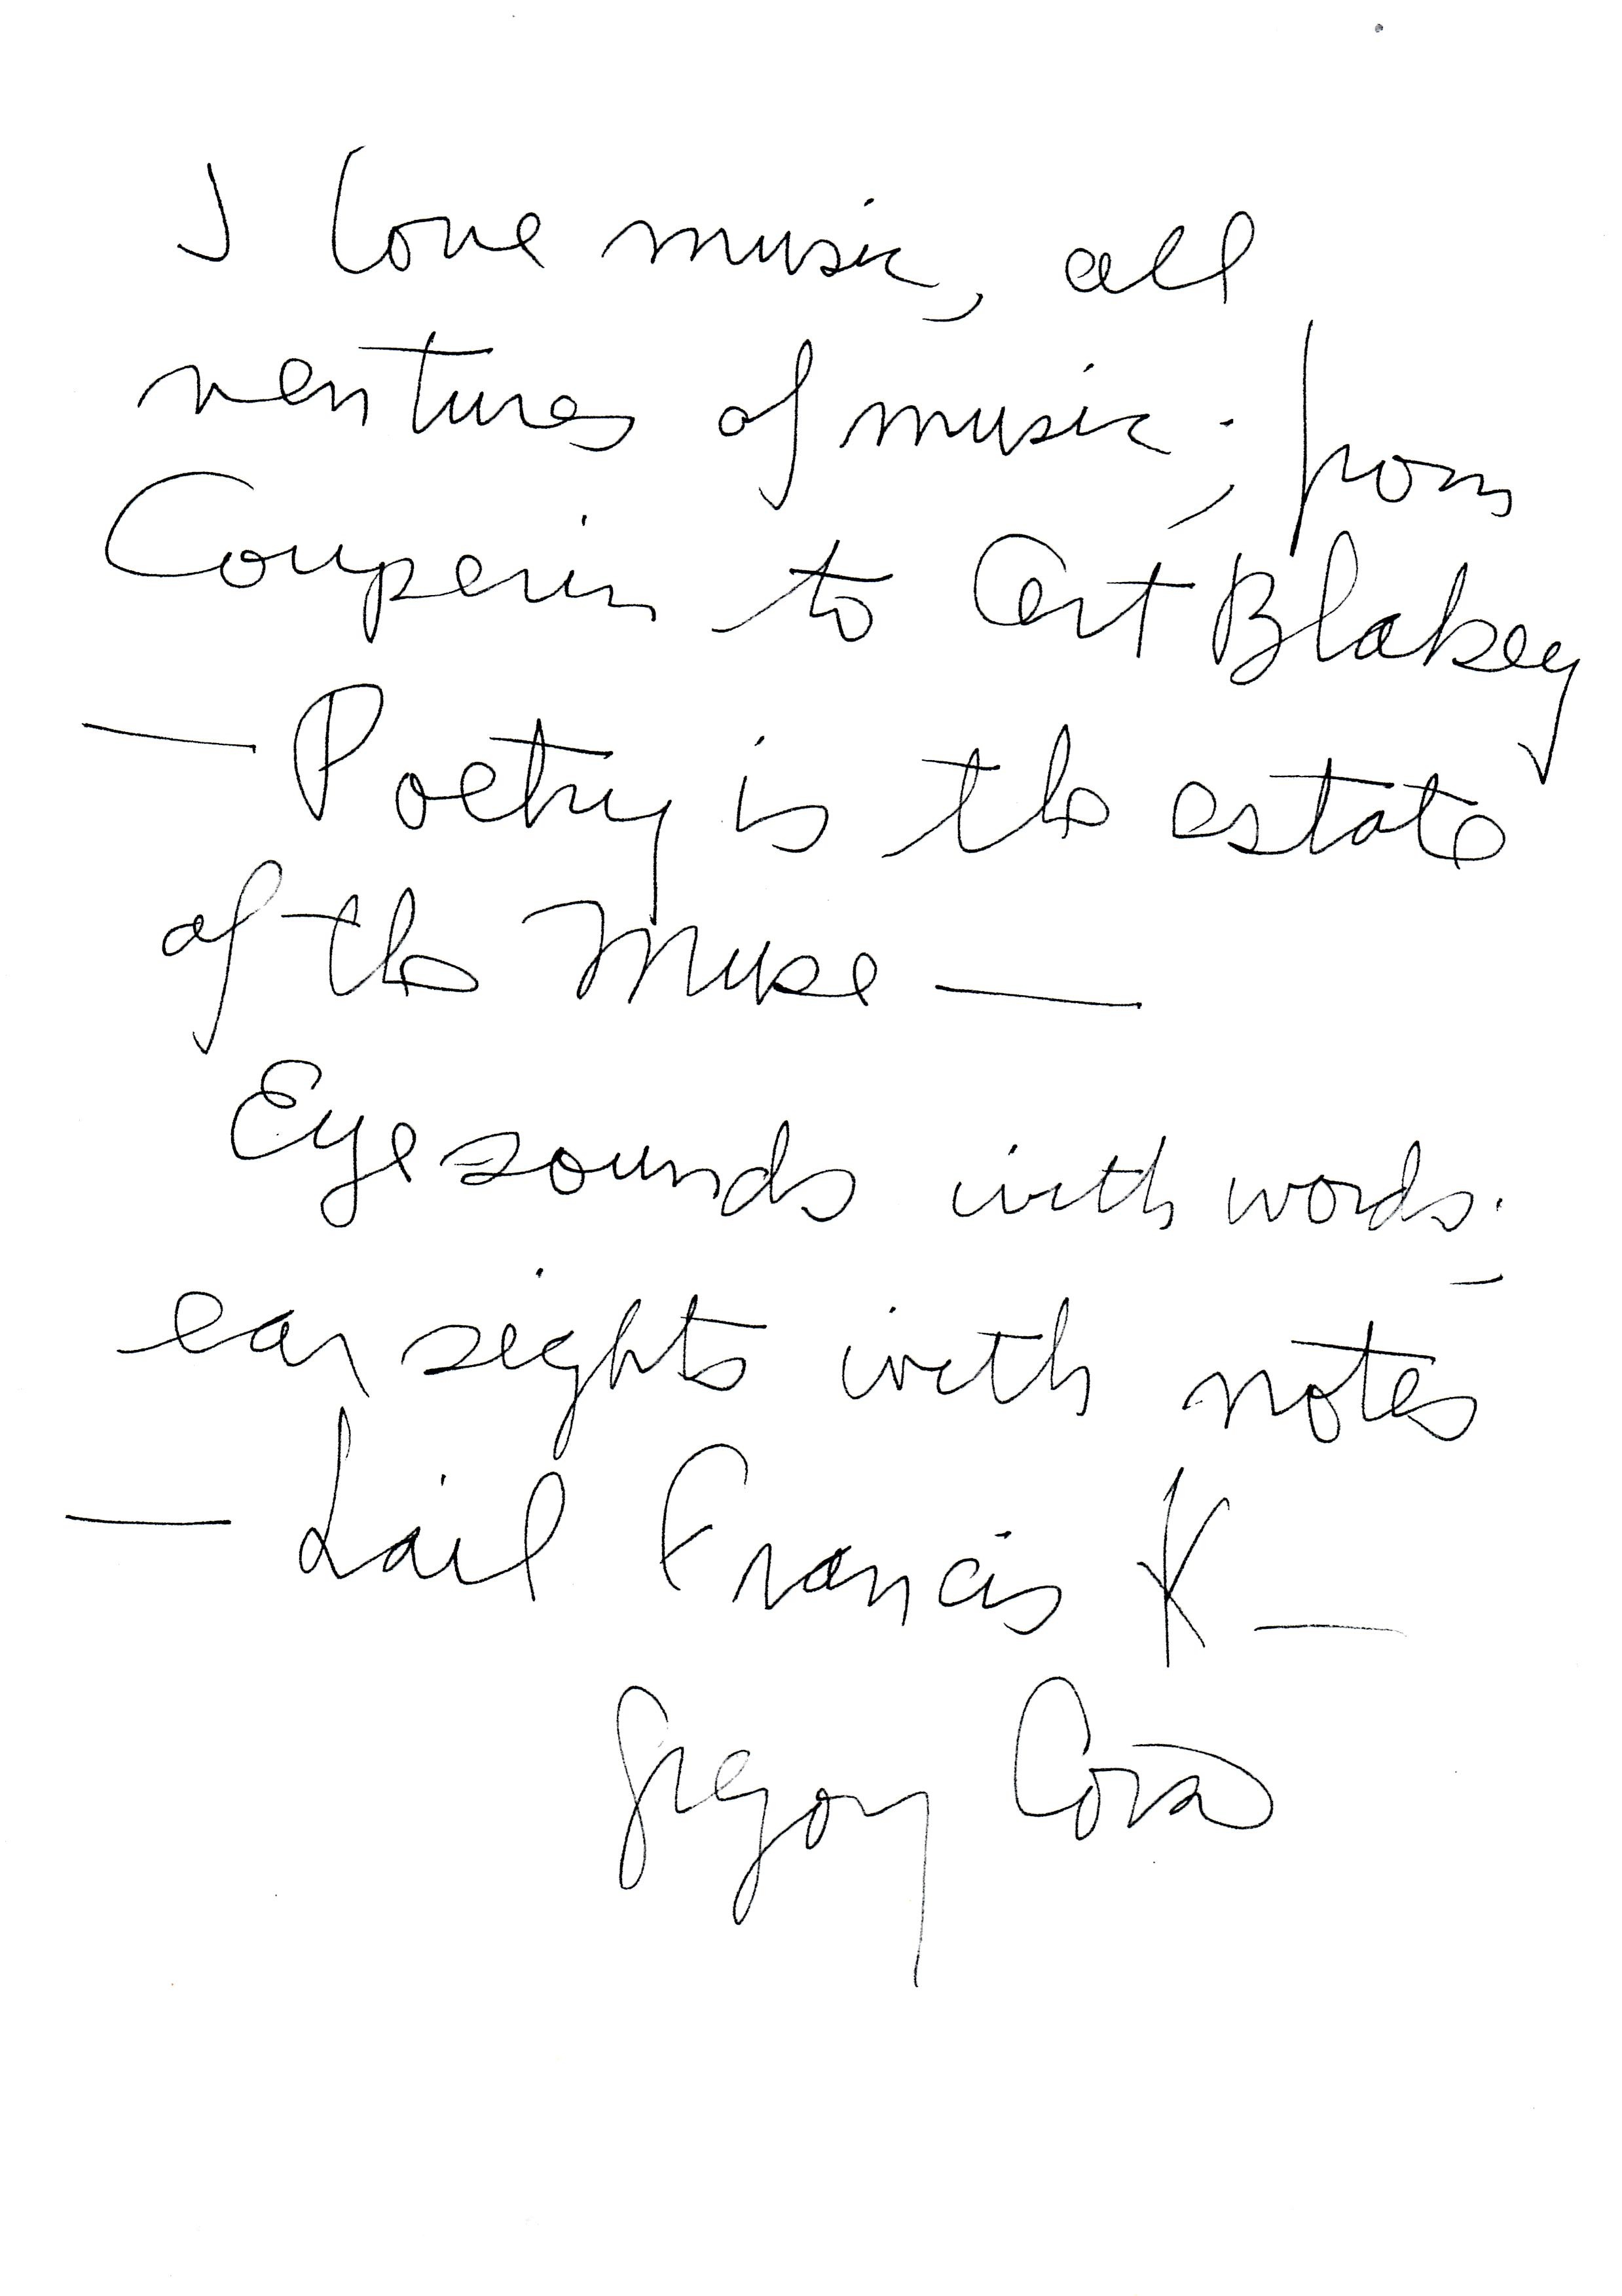 I love music, all
ventures of music; from
Couperin to Art Blakey
— Poetry is the estate
of the Muse —
Eye sounds with words;
ear sights with notes
— Lail Francis K —
Gregory Corso